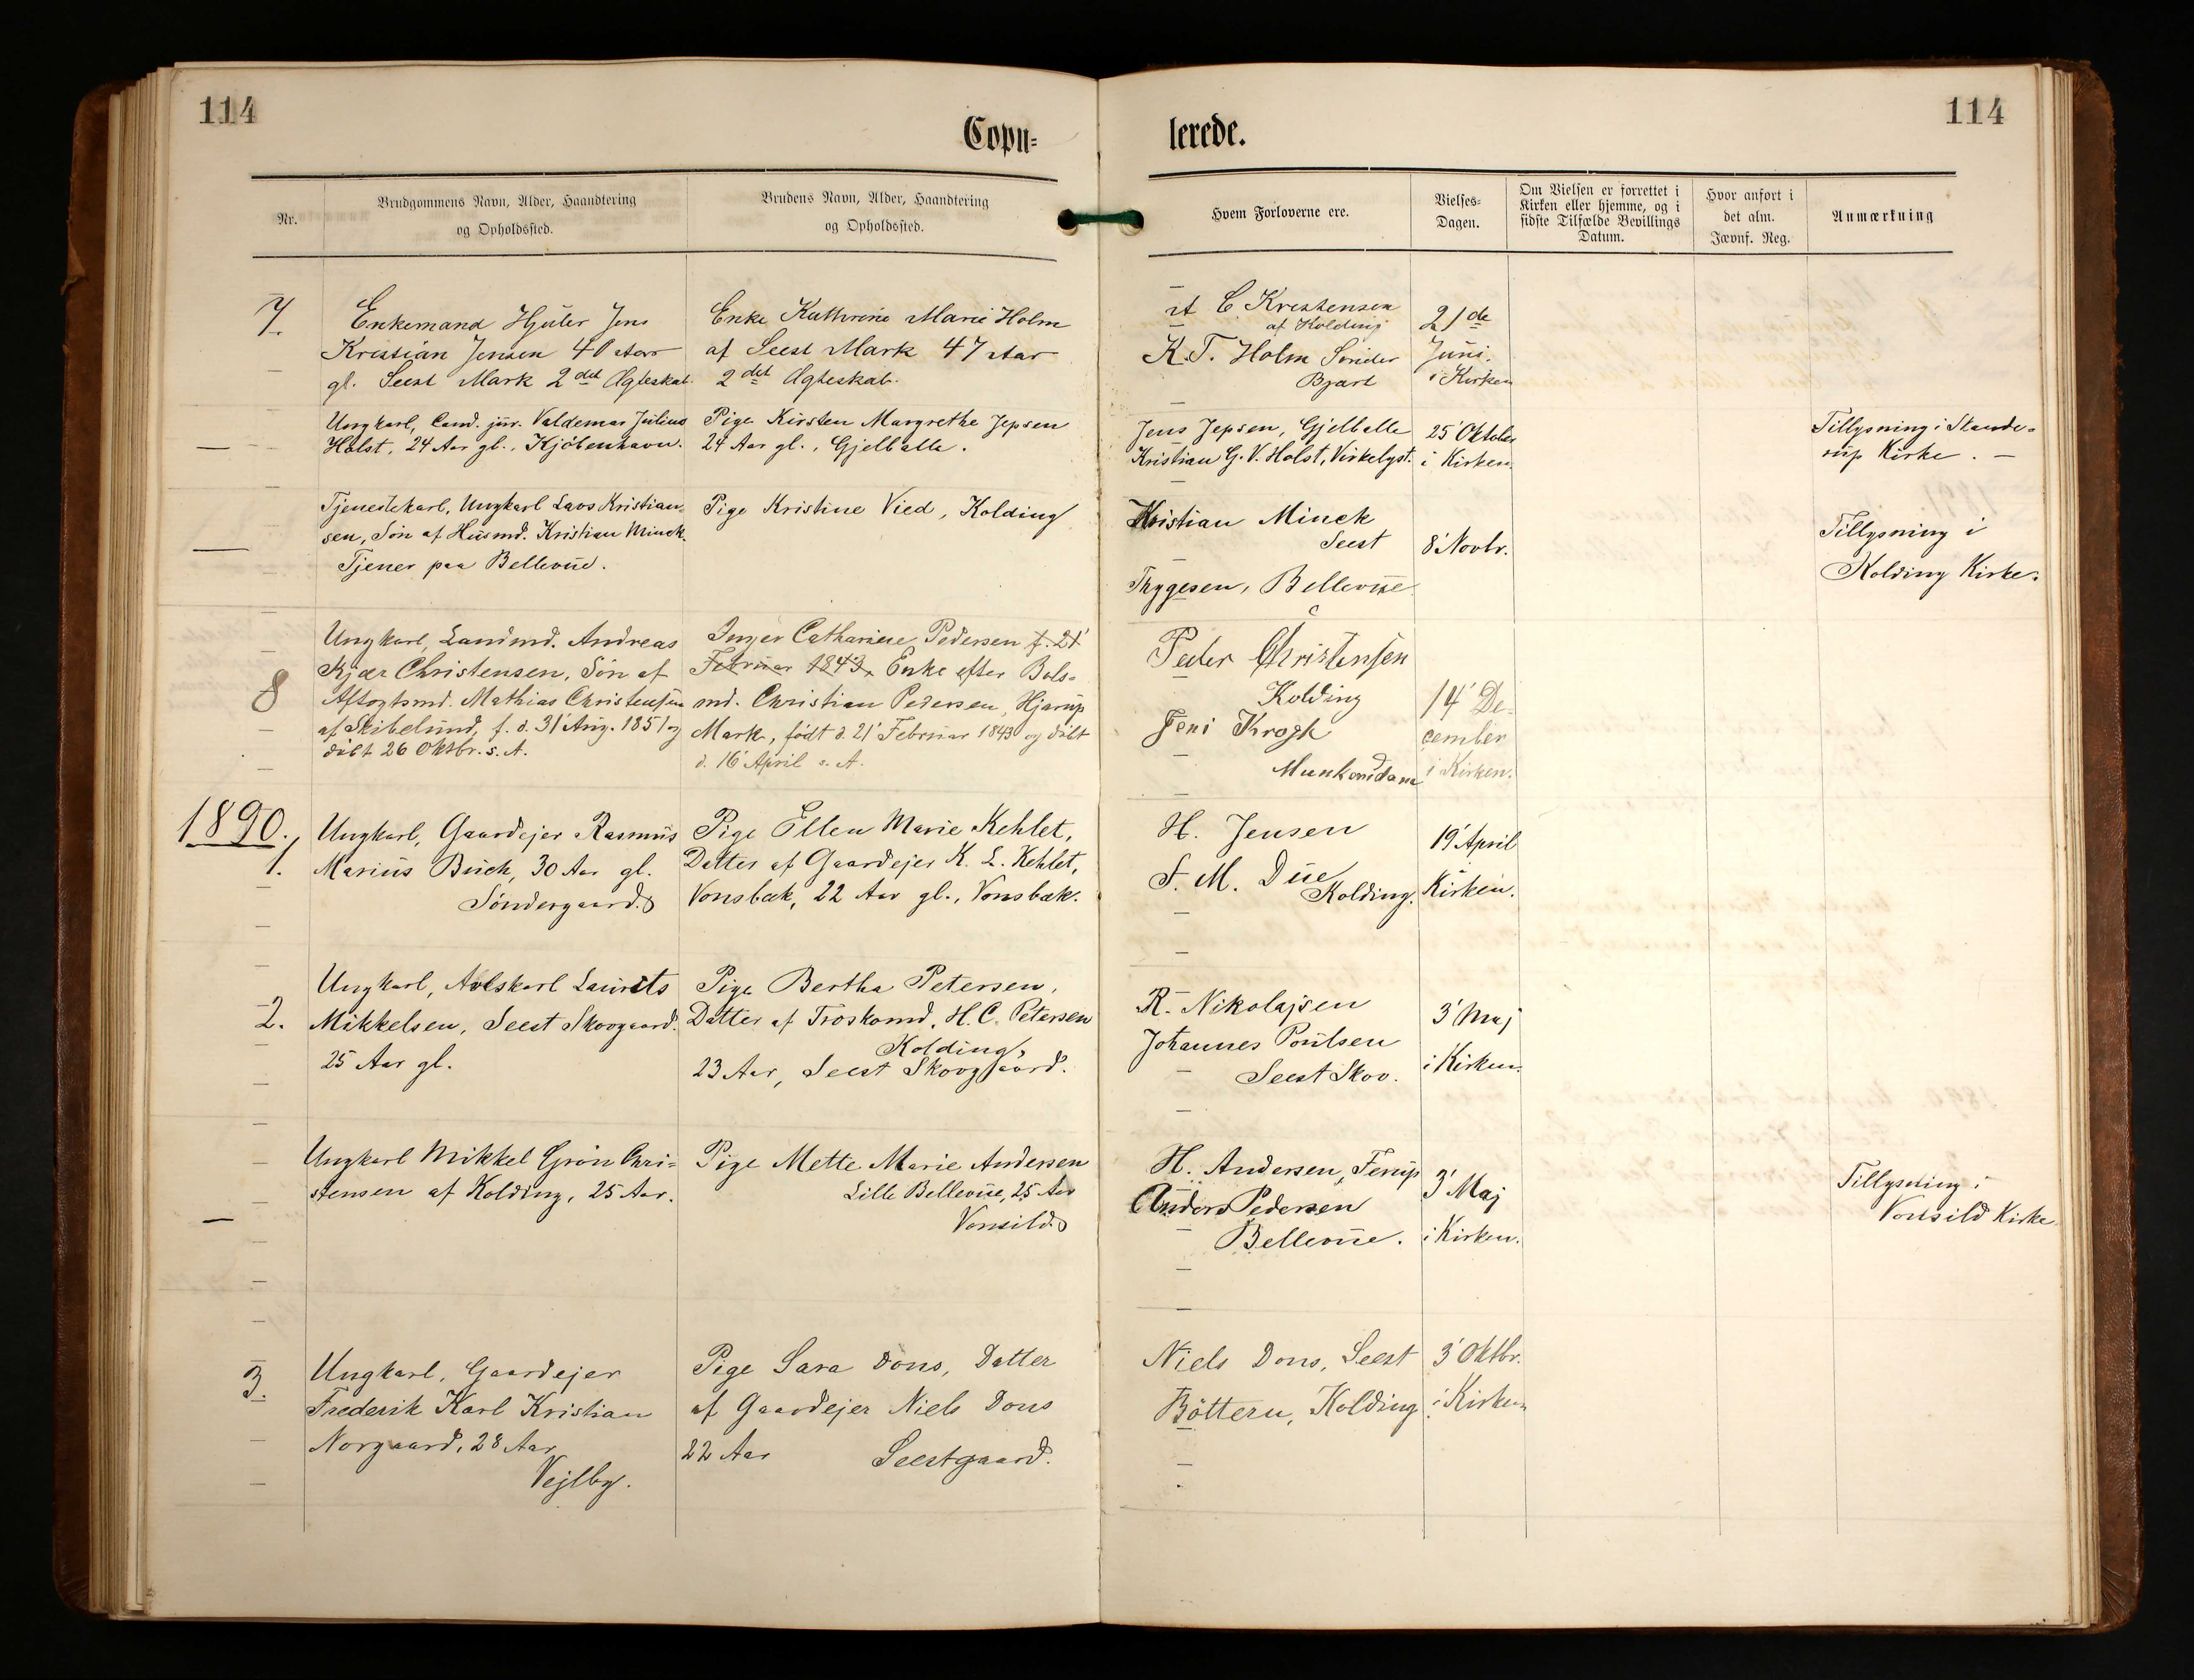 114
114
Copu=
lerede.
Nr.
Brudgommens Navn, Alder, Haandtering
og Opholdssted.
Brudens Navn, Alder, Haandtering
og Opholdssted.
Hvem Forloverne ere.
Vielses-
Dagen.
Om Vielsen er forrettet i
Kirken eller hjemme, og i
sidste Tilfælde Bevillings
Datum.
Hvor anført i
det alm.
Jævnf. Reg.
Anmærkning
7.
Enkemand Hjuler Jens
Kristian Jensen 40 Aar
gl. Seest Mark 2det Ægteskab.
Enke Kathrine Marie Holm
af Seest Mark 47 Aar
2det Ægteskab.
C. Krestensen
af Kolding
K. T. Holm Sønder
Bjart
21de
Juni.
i Kirken
—
Ungkarl, Cand. jur. Valdemar Julius
Holst, 24 Aar gl., Kjöbenhavn.
Pige Kirsten Margrethe Jepsen
24 Aar gl., Gjelballe.
Jens Jepsen, Gjelballe
Kristian G. V. Holst, Virkelyst.
25' Oktober
i Kirken.
Tillysning i Skande=
rup Kirke. —
—
Tjenestekarl, Ungkarl Lavs Kristian=
sen, Søn af Husmd. Kristian Minck.
Tjener paa Bellevue.
Pige Kristine Vied, Kolding
Kristian Minck
Seest
Thygesen, Bellevue
8' Novbr.
Tillysning i
Kolding Kirke.
8
Ungkarl, Landmd. Andreas
Kjær Christensen, Søn af
Aftægtsmd. Mathias Christensen
af Skibelund, f. d. 31' Aug. 1851 og
døbt 26 Oktbr. s. A.
Inger Cathariene Pedersen f. 21'
Februar 1843, Enke efter Bols=
md. Christian Pedersen, Hjarup
Mark, født d. 21' Februar 1843 og døbt
d. 16' April s. A.
Peder Christensen
Kolding
Jeni Krogh
14' De=
cember
i Kirken.
1890.
1.
Ungkarl, Gaardejer Rasmus
Marius Buch, 30 Aar gl.
Søndergaard.
Pige Ellen Marie Kehlet,
Datter af Gaardejer K. L. Kehlet,
Vonsbæk, 22 Aar gl., Vonsbæk.
H. Jensen
S. M. Due
Kolding.
19' April
Kirken.
2.
Ungkarl, Avlskarl Laurits
Mikkelsen, Seest Skovgaard.
25 Aar gl.
Pige Bertha Petersen,
Datter af H. C. Petersen
Kolding,
23 Aar, Seest Skovgaard.
R. Nikolajsen
Johannes Poulsen
Seest Skov.
3' Maj
i Kirken.
—
Ungkarl Mikkel Grøn Chri=
stensen af Kolding, 25 Aar.
Pige Mette Marie Andersen
Lille Bellevue, 25 Aar
Vonsild.
H. Andersen, Ferup
Anders Pedersen
Bellevue.
3' Maj
i Kirken.
Tillysning i
Vonsild Kirke
3.
Ungkarl, Gaardejer
Frederik Karl Kristian
Norgaard, 28 Aar
Vejlby.
Pige Sara Dons, Datter
af Gaardejer Niels Dons
22 Aar Seestgaard.
Niels Dons, Seest
Böttern, Kolding
3' Oktbr.
i Kirken